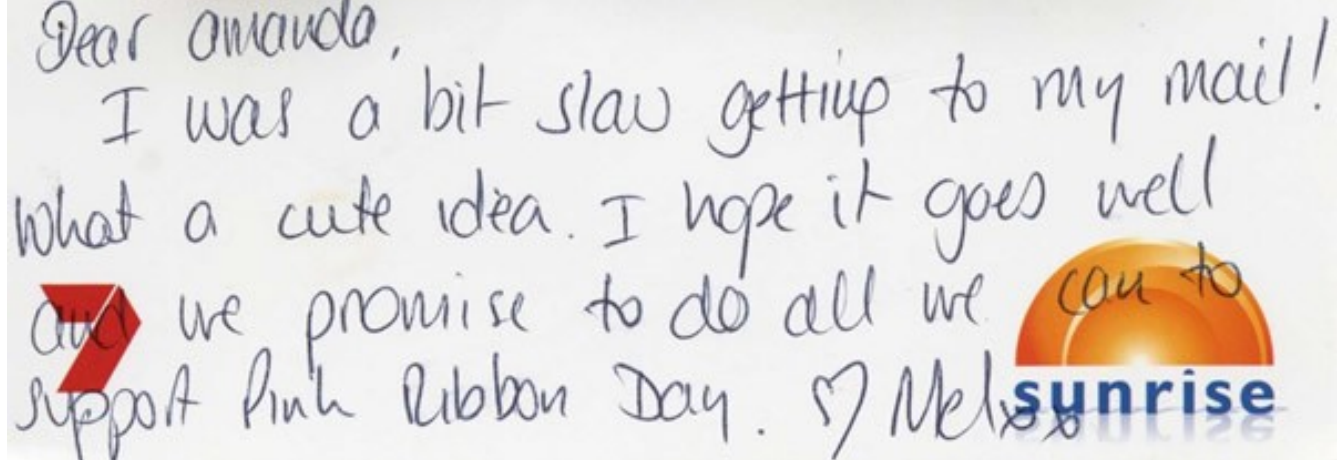 Dear amanda,
I was a bit slow getting to my mail!
What a cute idea. I hope it goes well
and we promise to do all we can to
support Pink Ribbon Day. ♡ Mel xx
7 sunrise